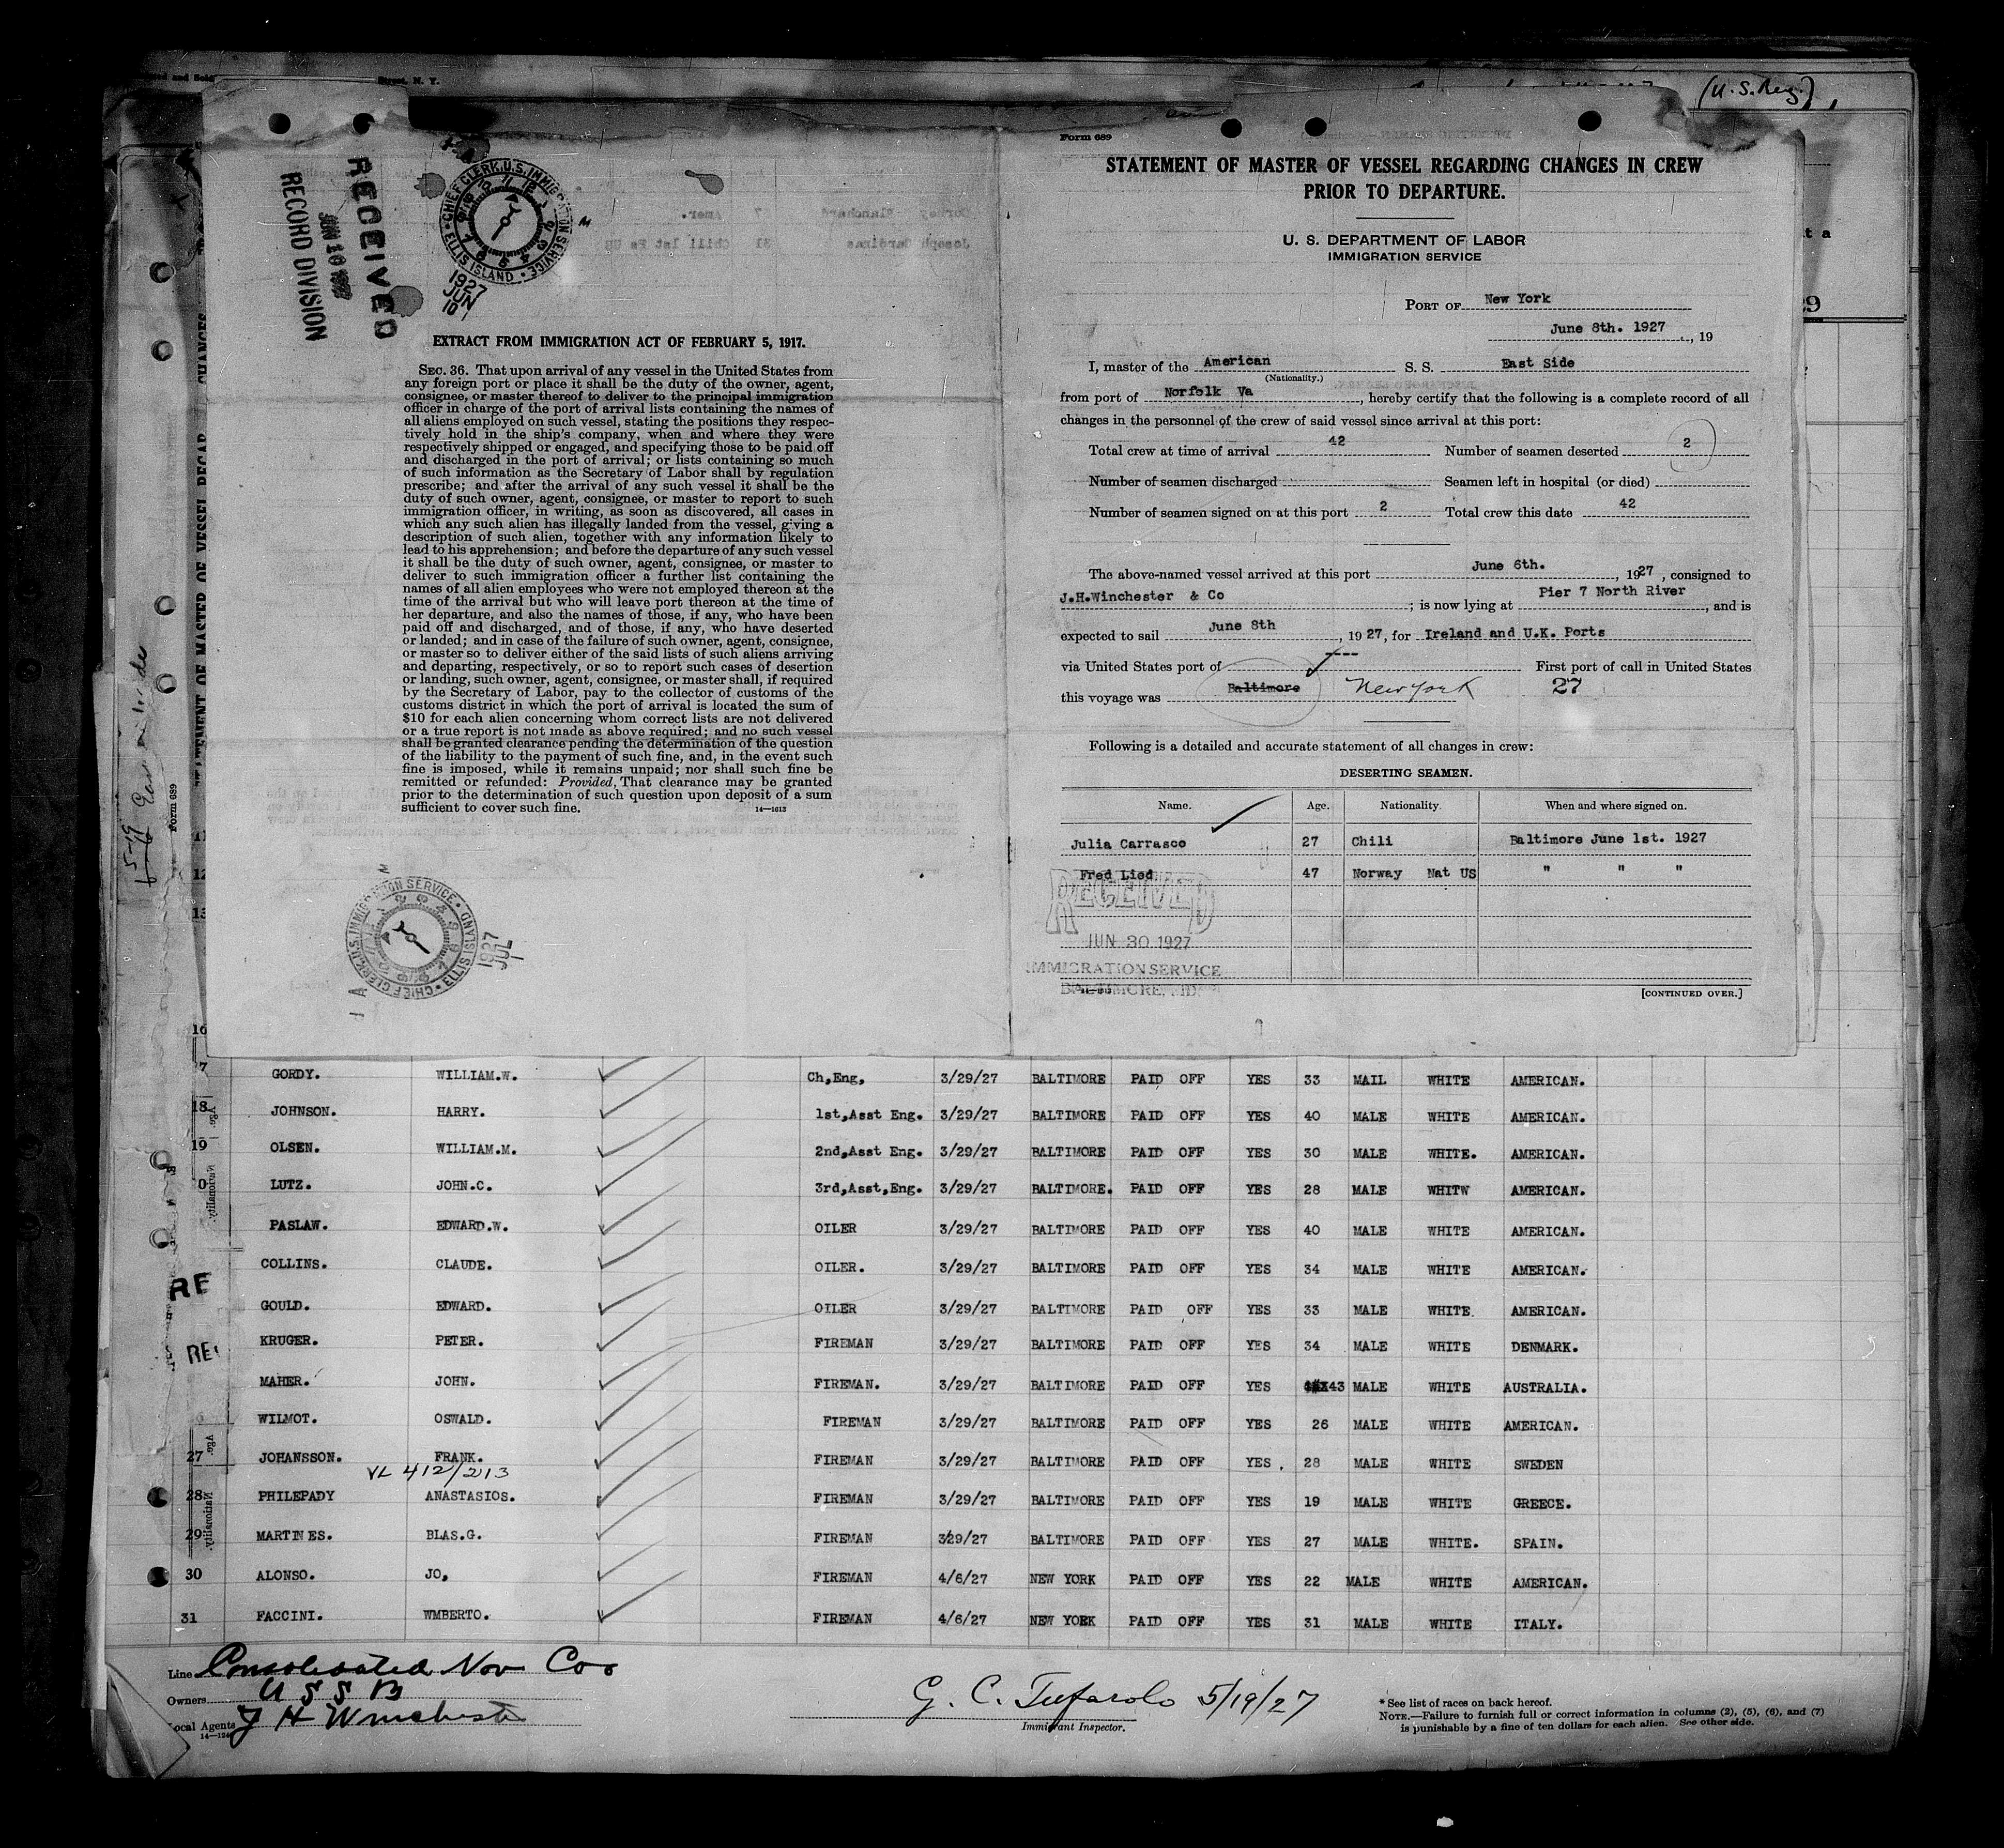 Street, N. Y.
(U. S. Reg.)
RECEIVED
JUN 10 1927
RECORD DIVISION
CHIEF CLERK, U.S. IMMIGRATION SERVICE • ELLIS ISLAND •
1927
JUN
10
EXTRACT FROM IMMIGRATION ACT OF FEBRUARY 5, 1917.
SEC. 36. That upon arrival of any vessel in the United States from
any foreign port or place it shall be the duty of the owner, agent,
consignee, or master thereof to deliver to the principal immigration
officer in charge of the port of arrival lists containing the names of
all aliens employed on such vessel, stating the positions they respec-
tively hold in the ship's company, when and where they were
respectively shipped or engaged, and specifying those to be paid off
and discharged in the port of arrival; or lists containing so much
of such information as the Secretary of Labor shall by regulation
prescribe; and after the arrival of any such vessel it shall be the
duty of such owner, agent, consignee, or master to report to such
immigration officer, in writing, as soon as discovered, all cases in
which any such alien has illegally landed from the vessel, giving a
description of such alien, together with any information likely to
lead to his apprehension; and before the departure of any such vessel
it shall be the duty of such owner, agent, consignee, or master to
deliver to such immigration officer a further list containing the
names of all alien employees who were not employed thereon at the
time of the arrival but who will leave port thereon at the time of
her departure, and also the names of those, if any, who have been
paid off and discharged, and of those, if any, who have deserted
or landed; and in case of the failure of such owner, agent, consignee,
or master so to deliver either of the said lists of such aliens arriving
and departing, respectively, or so to report such cases of desertion
or landing, such owner, agent, consignee, or master shall, if required
by the Secretary of Labor, pay to the collector of customs of the
customs district in which the port of arrival is located the sum of
$10 for each alien concerning whom correct lists are not delivered
or a true report is not made as above required; and no such vessel
shall be granted clearance pending the determination of the question
of the liability to the payment of such fine, and, in the event such
fine is imposed, while it remains unpaid; nor shall such fine be
remitted or refunded: Provided, That clearance may be granted
prior to the determination of such question upon deposit of a sum
sufficient to cover such fine. 14—1613
CHIEF CLERK, U.S. IMMIGRATION SERVICE • ELLIS ISLAND •
1927
JUL
1
Form 689
STATEMENT OF MASTER OF VESSEL REGARDING CHANGES IN CREW
PRIOR TO DEPARTURE.
U. S. DEPARTMENT OF LABOR
IMMIGRATION SERVICE
PORT OF New York
June 8th. 1927, 19
I, master of the American S. S. East Side
(Nationality.)
from port of Norfolk Va, hereby certify that the following is a complete record of all
changes in the personnel of the crew of said vessel since arrival at this port:
Total crew at time of arrival 42 Number of seamen deserted 2
Number of seamen discharged Seamen left in hospital (or died)
Number of seamen signed on at this port 2 Total crew this date 42
The above-named vessel arrived at this port June 6th., 1927, consigned to
J.H.Winchester & Co; is now lying at Pier 7 North River, and is
expected to sail June 8th, 1927, for Ireland and U.K. Ports
via United States port of ---- First port of call in United States
this voyage was Baltimore New York 27
Following is a detailed and accurate statement of all changes in crew:
DESERTING SEAMEN.
Name. Age. Nationality. When and where signed on.
Julia Carrasco 27 Chili Baltimore June 1st. 1927
Fred Lied 47 Norway Nat US " " "
RECEIVED
JUN 30 1927
IMMIGRATION SERVICE
BALTIMORE, MD.
[CONTINUED OVER.]
STATEMENT OF MASTER OF VESSEL REGAR CHANGES
Form 689
7 GORDY. WILLIAM.W. Ch,Eng, 3/29/27 BALTIMORE PAID OFF YES 33 MAIL WHITE AMERICAN.
18 JOHNSON. HARRY. 1st,Asst Eng. 3/29/27 BALTIMORE PAID OFF YES 40 MALE WHITE AMERICAN.
19 OLSEN. WILLIAM.M. 2nd,Asst Eng. 3/29/27 BALTIMORE PAID OFF YES 30 MALE WHITE. AMERICAN.
0 LUTZ. JOHN.C. 3rd,Asst,Eng. 3/29/27 BALTIMORE. PAID OFF YES 28 MALE WHITW AMERICAN.
PASLAW. EDWARD.W. OILER 3/29/27 BALTIMORE PAID OFF YES 40 MALE WHITE AMERICAN.
COLLINS. CLAUDE. OILER. 3/29/27 BALTIMORE PAID OFF YES 34 MALE WHITE AMERICAN.
GOULD. EDWARD. OILER 3/29/27 BALTIMORE PAID OFF YES 33 MALE WHITE. AMERICAN.
KRUGER. PETER. FIREMAN 3/29/27 BALTIMORE PAID OFF YES 34 MALE WHITE DENMARK.
MAHER. JOHN. FIREMAN. 3/29/27 BALTIMORE PAID OFF YES 43 MALE WHITE AUSTRALIA.
WILMOT. OSWALD. FIREMAN 3/29/27 BALTIMORE PAID OFF YES 26 MALE WHITE AMERICAN.
27 JOHANSSON. FRANK. FIREMAN 3/29/27 BALTIMORE PAID OFF YES. 28 MALE WHITE SWEDEN
VL 412/213
28 PHILEPADY ANASTASIOS. FIREMAN 3/29/27 BALTIMORE PAID OFF YES 19 MALE WHITE GREECE.
29 MARTINES. BLAS.G. FIREMAN 3/29/27 BALTIMORE PAID OFF YES 27 MALE WHITE. SPAIN.
30 ALONSO. JO, FIREMAN 4/6/27 NEW YORK PAID OFF YES 22 MALE WHITE AMERICAN.
31 FACCINI. WMBERTO. FIREMAN 4/6/27 NEW YORK PAID OFF YES 31 MALE WHITE ITALY.
Line Consolidated Nav Coo
Owners U S S B
Local Agents J H Winchester
G. C. Tufarolo 5/19/27
Immigrant Inspector.
* See list of races on back hereof.
NOTE.—Failure to furnish full or correct information in columns (2), (5), (6), and (7)
is punishable by a fine of ten dollars for each alien. See other side.